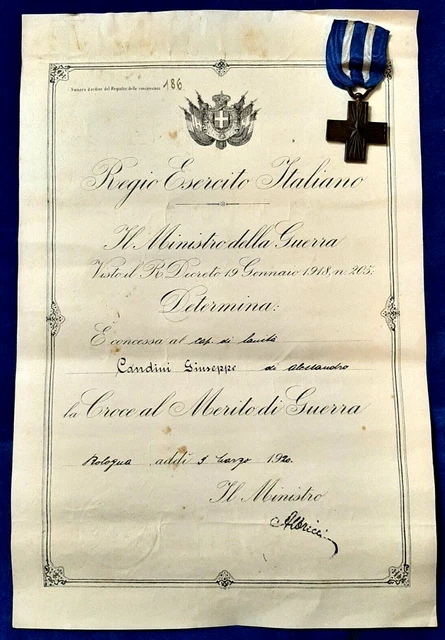 Numero d'ordine del Registro delle concessioni 186
Regio Esercito Italiano
Il Ministro della Guerra
Visto il R. Decreto 19 Gennaio 1918, n. 205.
Determina:
È concessa al cap. di Sanità
Candini Giuseppe di Alessandro
la Croce al Merito di Guerra
Bologna addì 5 Marzo 1920.
Il Ministro
Albricci